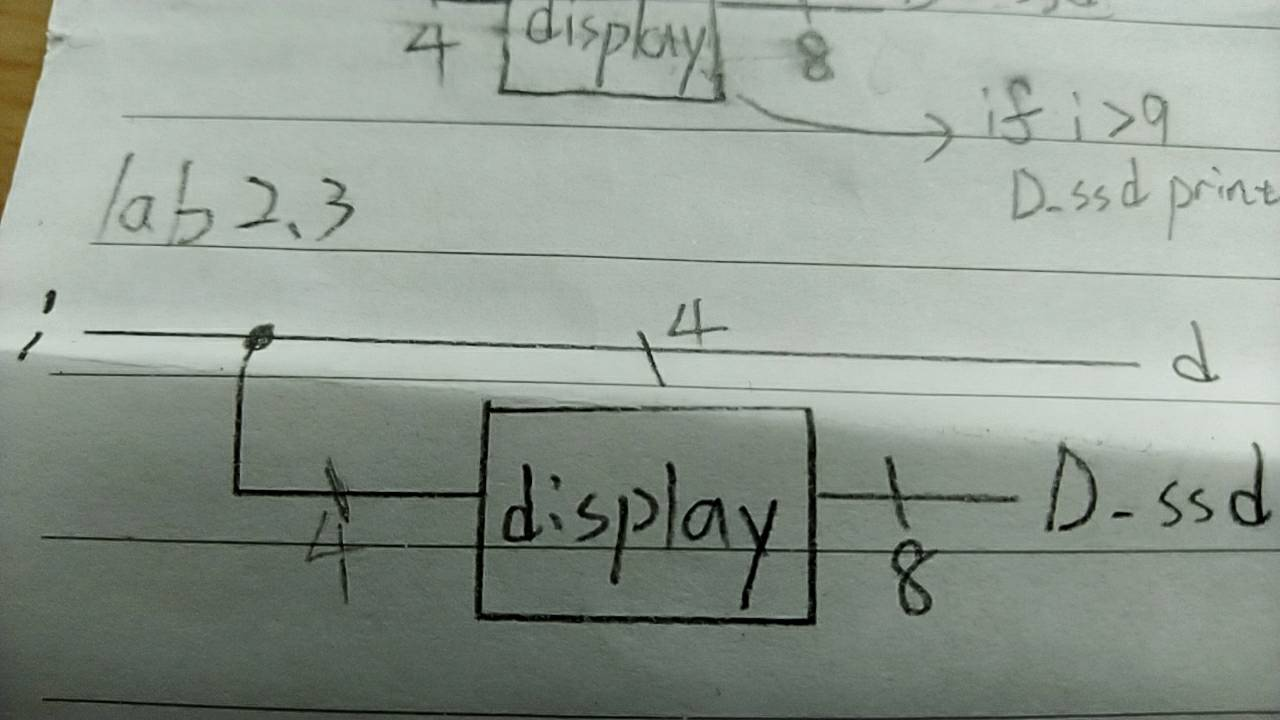 4 display 8
if i>9
D_ssd print
lab 2.3
i 4 d
4 display 8 D_ssd